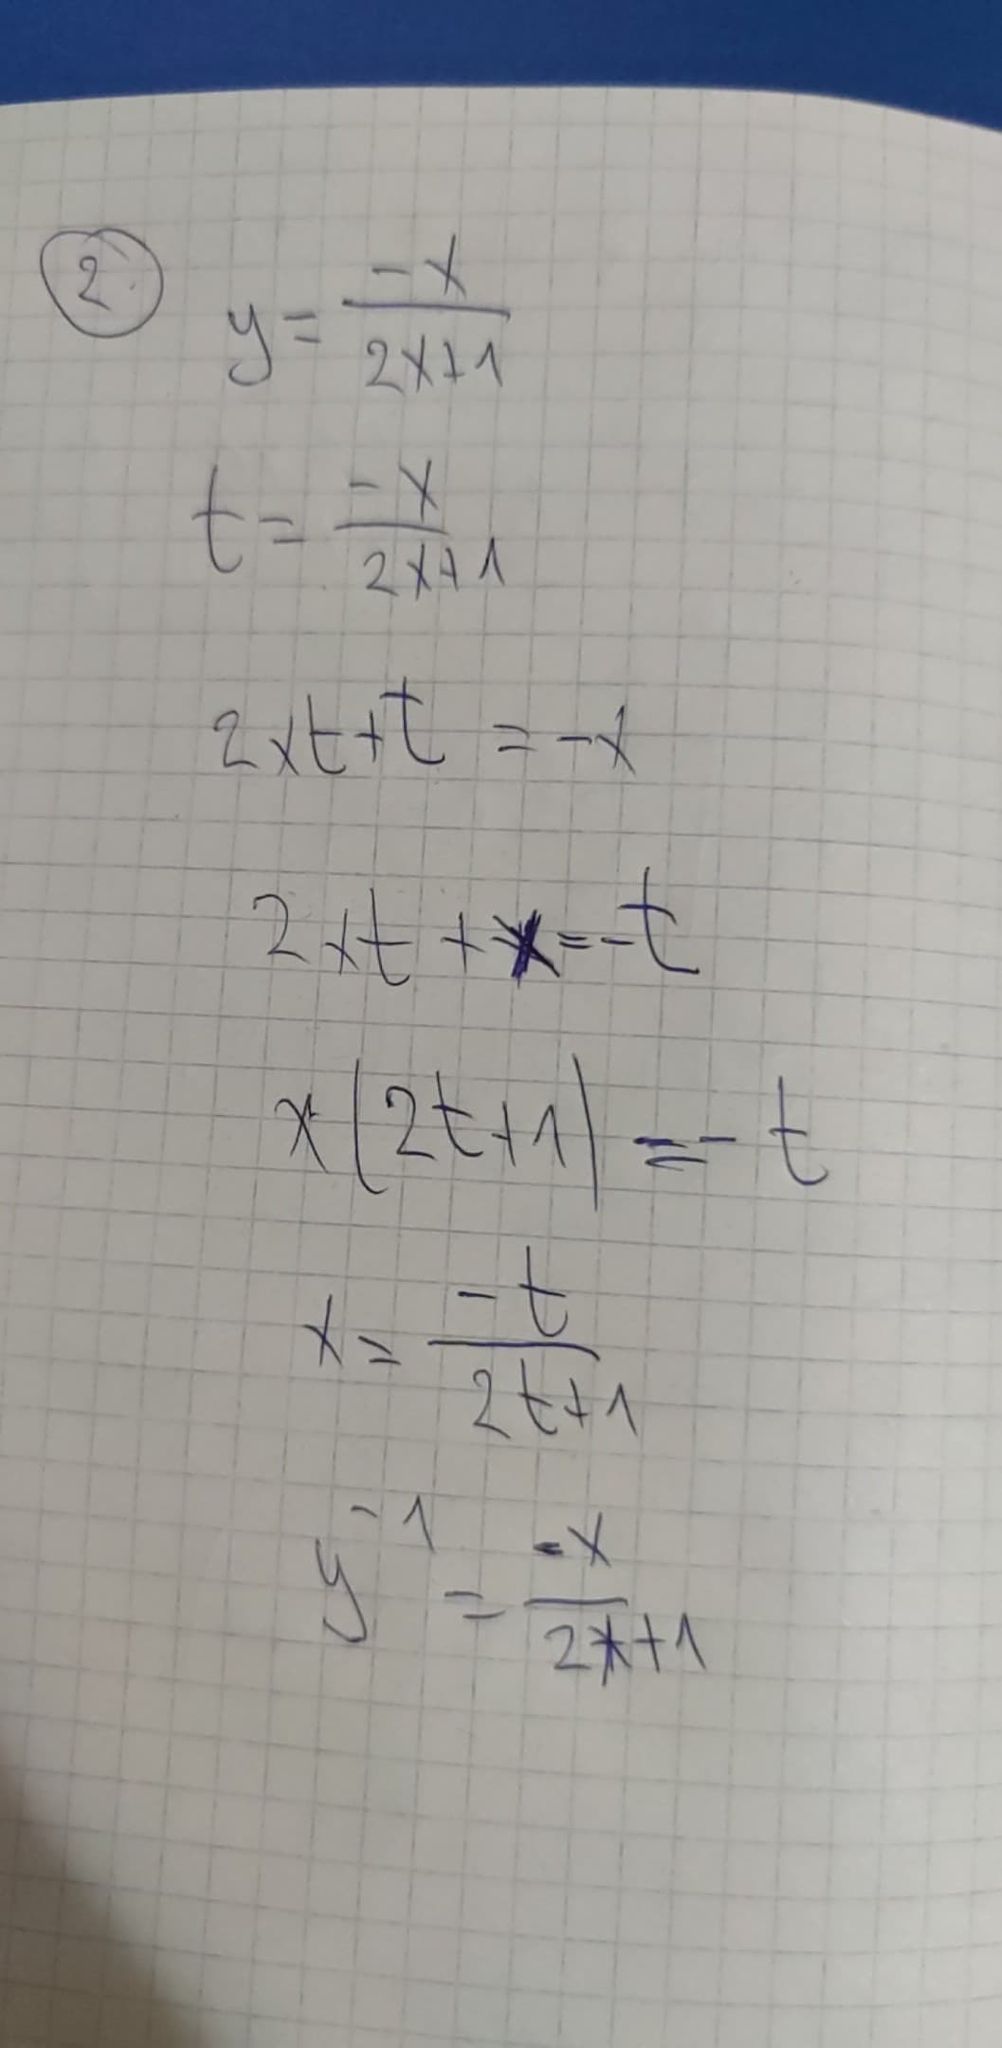 2.
y = -x / 2x+1
t = -x / 2x+1
2xt+t = -x
2xt + x = -t
x(2t+1) = -t
x = -t / 2t+1
y⁻¹ = -x / 2x+1